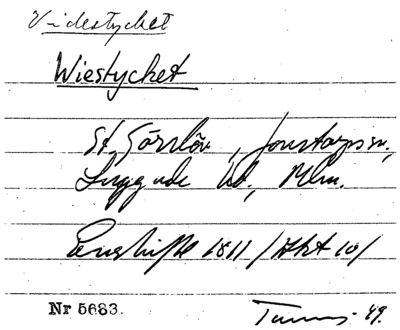 Videstycket
Wiestycket
St. Görslöv, Jonstorps sn.,
Luggude hd., Mlm.
Enskifte 1811 /Akt 10/
Nr 5683.
49.